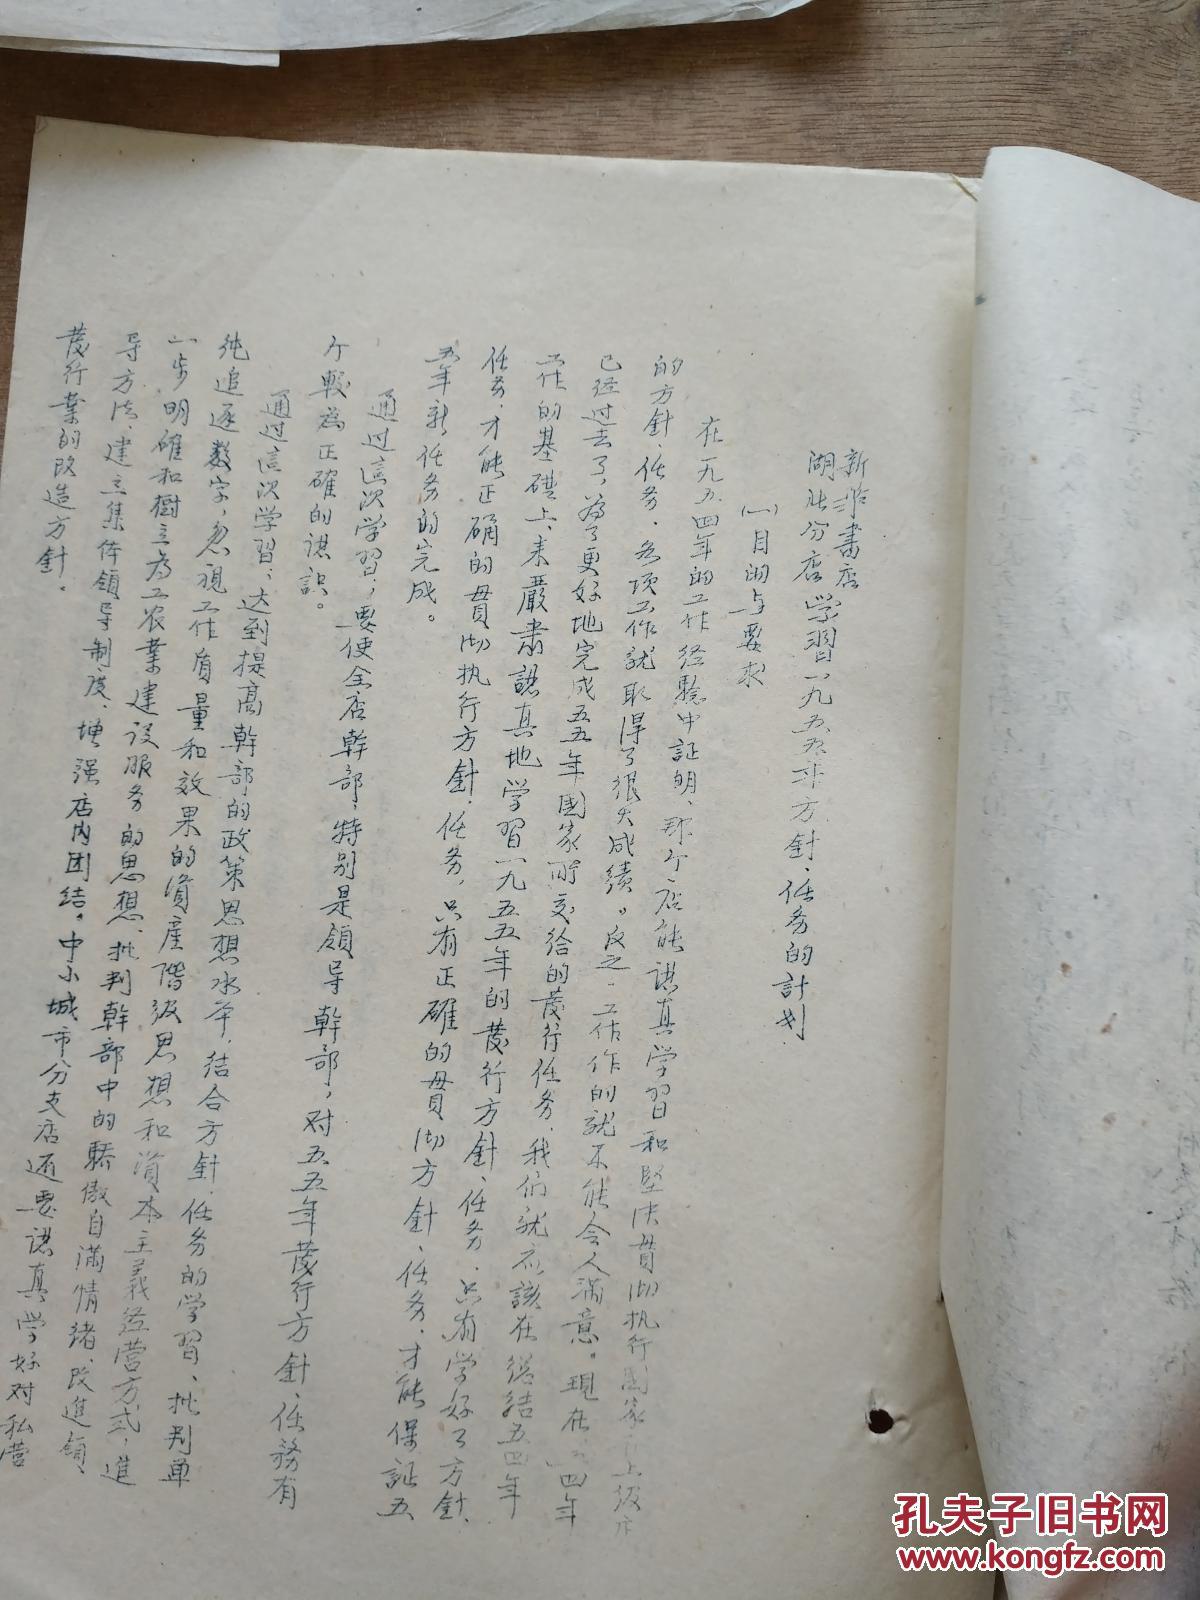 新華書店
湖北分店学習一九五五年方針、任务的計划
(一)目的与要求
在一九五四年的工作经驗中証明、那个店能認真学習和堅决貫彻执行國家上级
的方針、任务、各项工作就取得了很大成績。反之、工作作的就不能令人滿意。現在五四年
已经过去了，為了更好地完成五五年國家所交给的發行任务，我们就应該在總結五四年
工作的基礎上、来嚴肃認真地学習一九五五年的發行方針、任务、只有学好了方針、
任务、才能正确的貫彻执行方針、任务，只有正確的貫彻方針、任务、才能保証五
五年新任务的完成。
通过這次学習，要使全店幹部，特别是領导幹部，对五五年發行方針、任務有
个較為正確的認識。
通过這次学習，达到提高幹部的政策思想水平，结合方針、任务的学習、批判单
纯追逐数字，忽視工作质量和效果的資產階级思想和資本主義经营方式，進
一步明確和樹立为工农業建设服务的思想、批判幹部中的驕傲自滿情緒、改進領
导方法、建立集体領导制度、增强店内团结。中小城市分支店还要認真学好对私营
發行業的改造方針。
孔夫子旧书网
www.kongfz.com